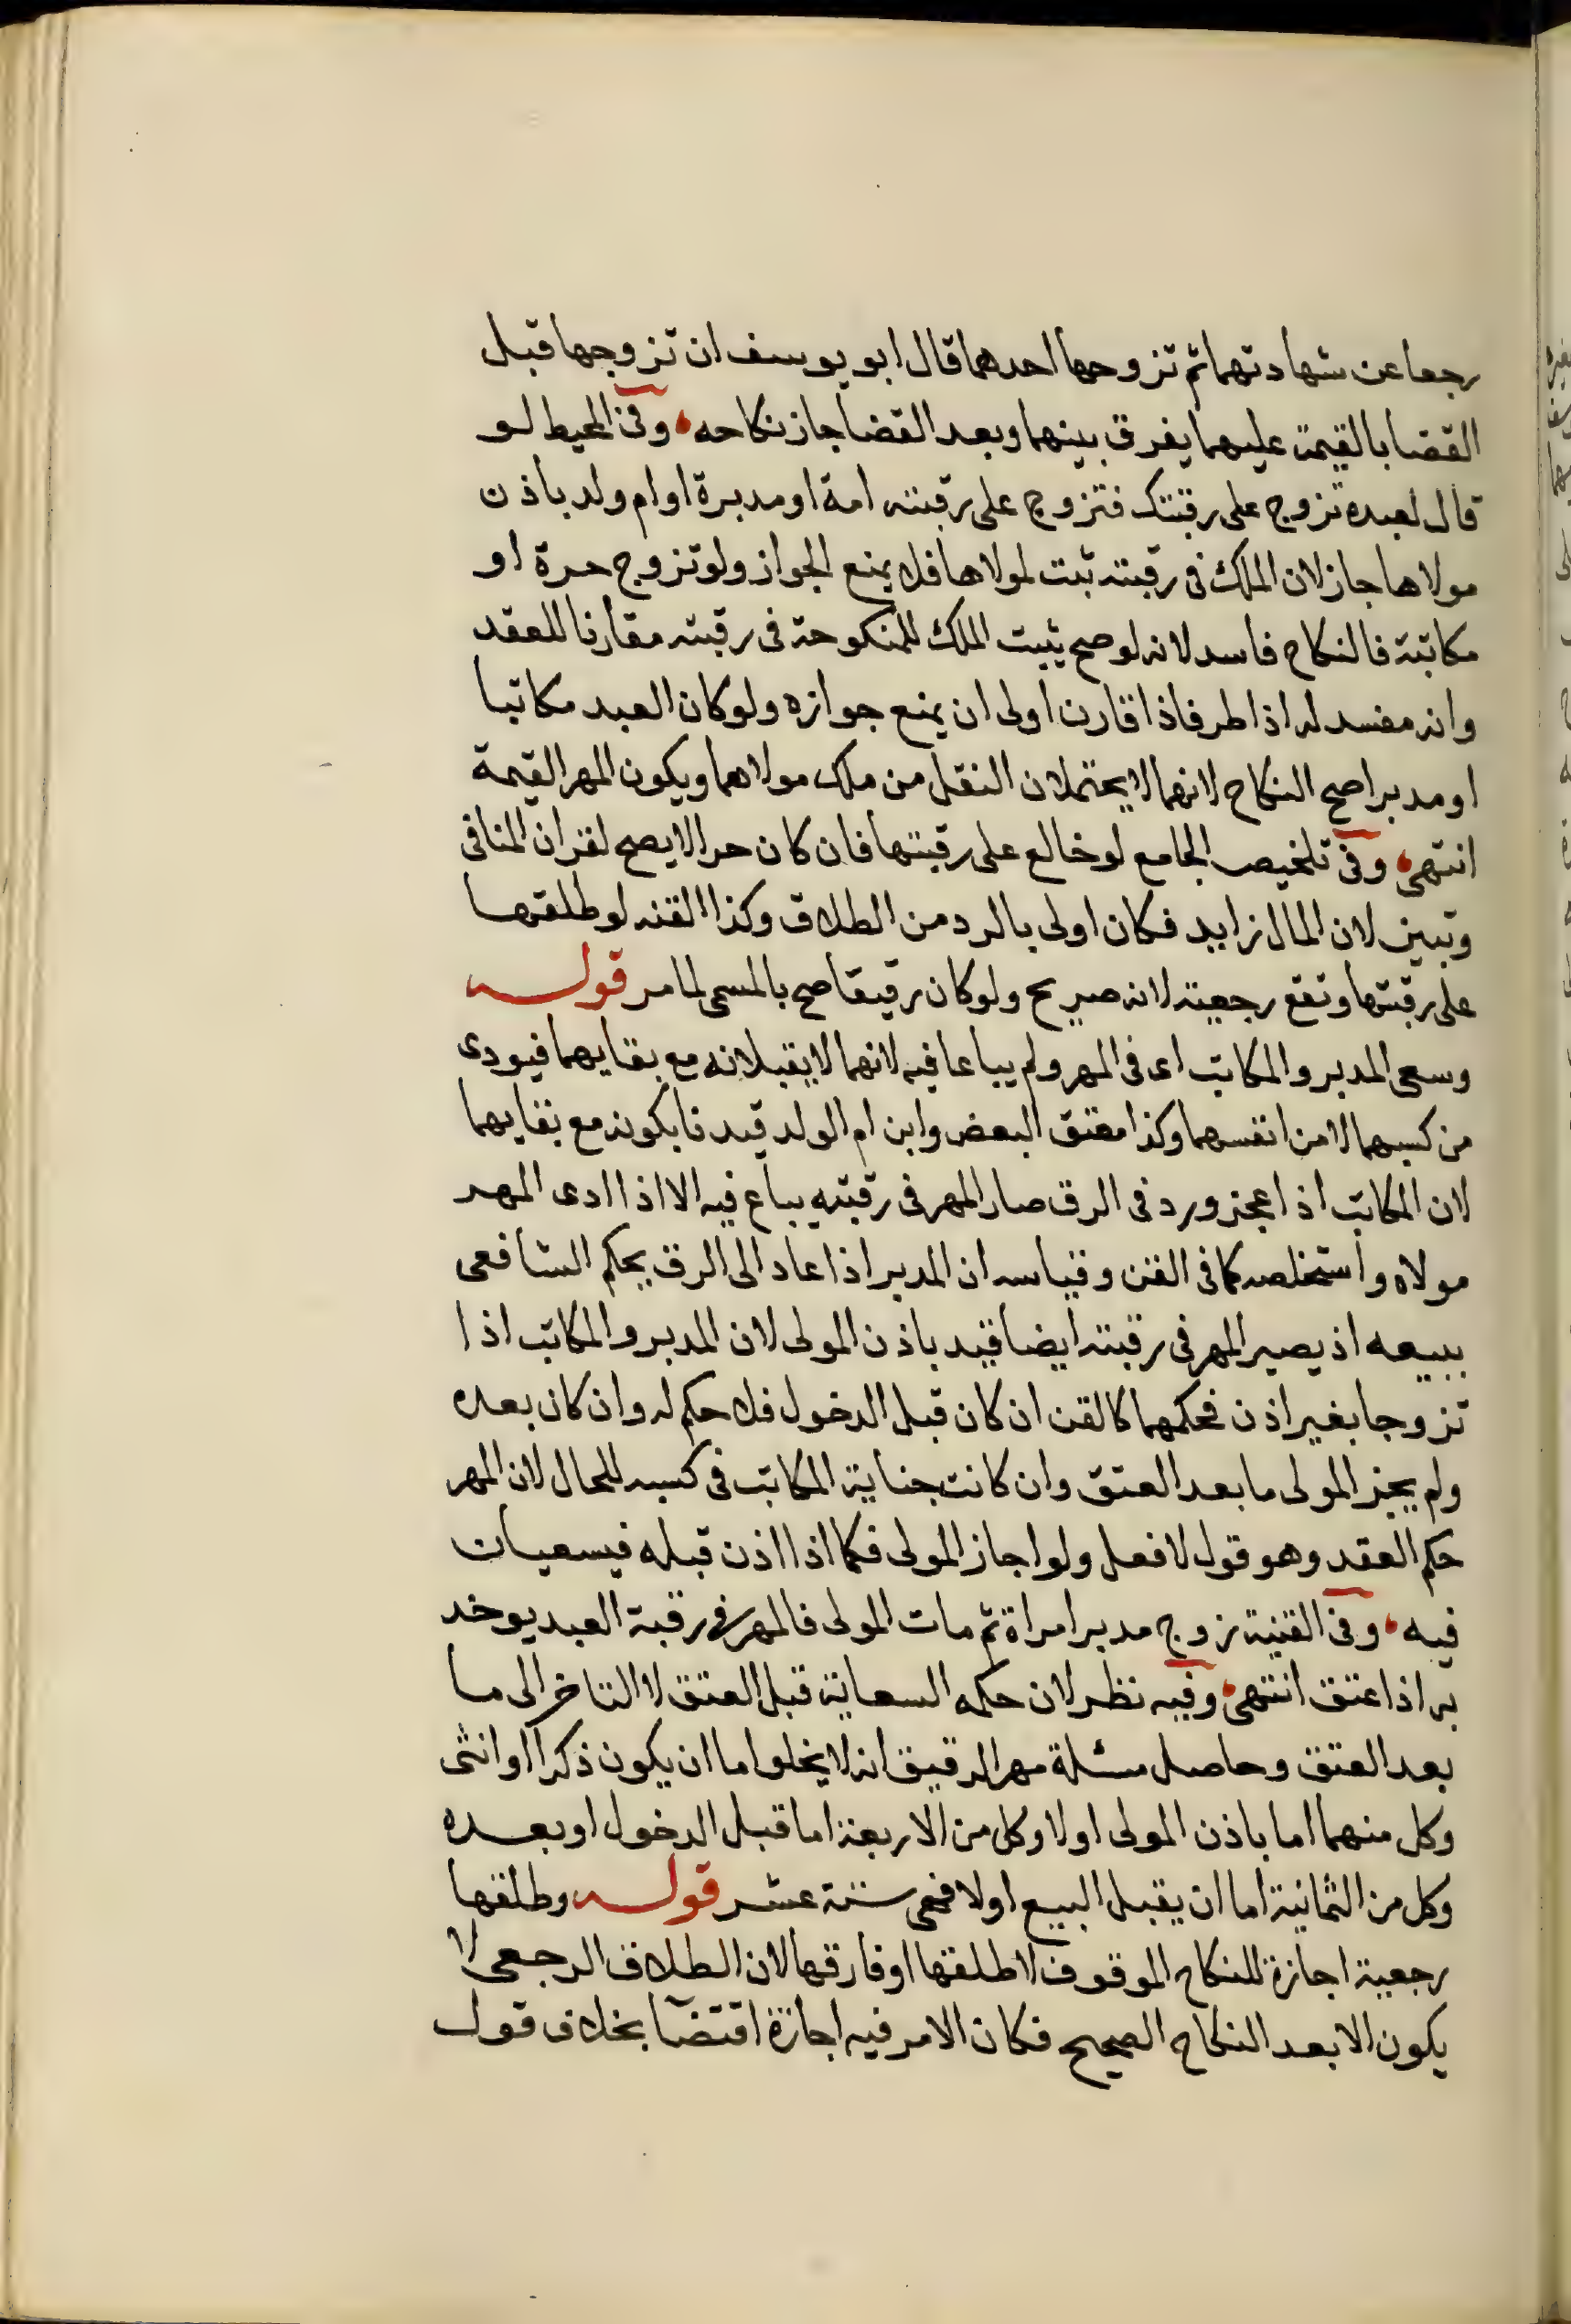 رجعا عن شهادتهما ثم تزوجها احدهما قال ابو يوسف ان تزوجها قبل
القضا بالقيمة عليهما يفرق بينهما وبعد القضا جاز نكاحه وفي المحيط لو
قال لعبده تزوج على رقبتك فتزوج على رقبته امة او مدبرة او ام ولد باذن
مولاها جاز لان الملك في رقبته ثبت لمولاها فلا يمنع الجواز ولو تزوج حرة او
مكاتبة فالنكاح فاسد لانه لو صح يثبت الملك للمنكوحة في رقبته مقارنا للعقد
وانه مفسد له اذا طر فاذا قارن اولى ان يمنع جوازه ولو كان العبد مكاتبا
او مدبرا صح النكاح لانهما لا يحتملان النقل من ملك مولاهما ويكون المهر القيمة
انتهى وفي تلخيص الجامع لو خالع على رقبتها فان كان حرا لا يصح لقران المنافى
وتبين لان المال زايد فكان اولى بالرد من الطلاق وكذا القنه لو طلقها
على رقبتها وتقع رجعية لانه صريح ولو كان رقيقا صح بالمسمى لما مر قوله
وسعى المدبر والمكاتب اى فى المهر ولم يباعا فيه لانهما لا يقبلانه مع بقايهما فيودى
من كسبهما لا من انفسهما وكذا معتق البعض وابن ام الولد قيدنا بكونه مع بقايهما
لان المكاتب اذا عجز ورد فى الرق صار المهر فى رقبته يباع فيه الا اذا ادى المهر
مولاه واستخلصه كما فى القن وقياسه ان المدبر اذا عاد الى الرق بحكم الشافعى
ببيعه اذ يصير المهر فى رقبته ايضا قيد باذن المولى لان المدبر والمكاتب اذا
تزوجا بغير اذن فحكمهما كالقن ان كان قبل الدخول فلا حكم له وان كان بعده
ولم يجز المولى ما بعد العتق وان كانت جناية المكاتب فى كسبه للحال لان المهر
حكم العقد وهو قول لا فعل ولو اجاز المولى فكما اذا اذن قبله فيسعيان
فيه وفى القنية زوج مدبرا امراة ثم مات المولى فالمهر في رقبة العبد يوخد
به اذا عتق انتهى وفيه نظر لان حكمه السعاية قبل العتق لا التاخر الى ما
بعد العتق وحاصل مسئلة مهر الرقيق انه لا يخلو اما ان يكون ذكرا او انثى
وكل منهما اما باذن المولى اولا وكل من الاربعة اما قبل الدخول او بعده
وكل من الثمانية اما ان يقبل البيع اولا فهى ستة عشر قوله وطلقها
رجعية اجازة للنكاح الموقوف لا طلقها او فارقها لان الطلاق الرجعى لا
يكون الا بعد النكاح الصحيح فكان الامر فيه اجازة اقتضآ بخلاف قول